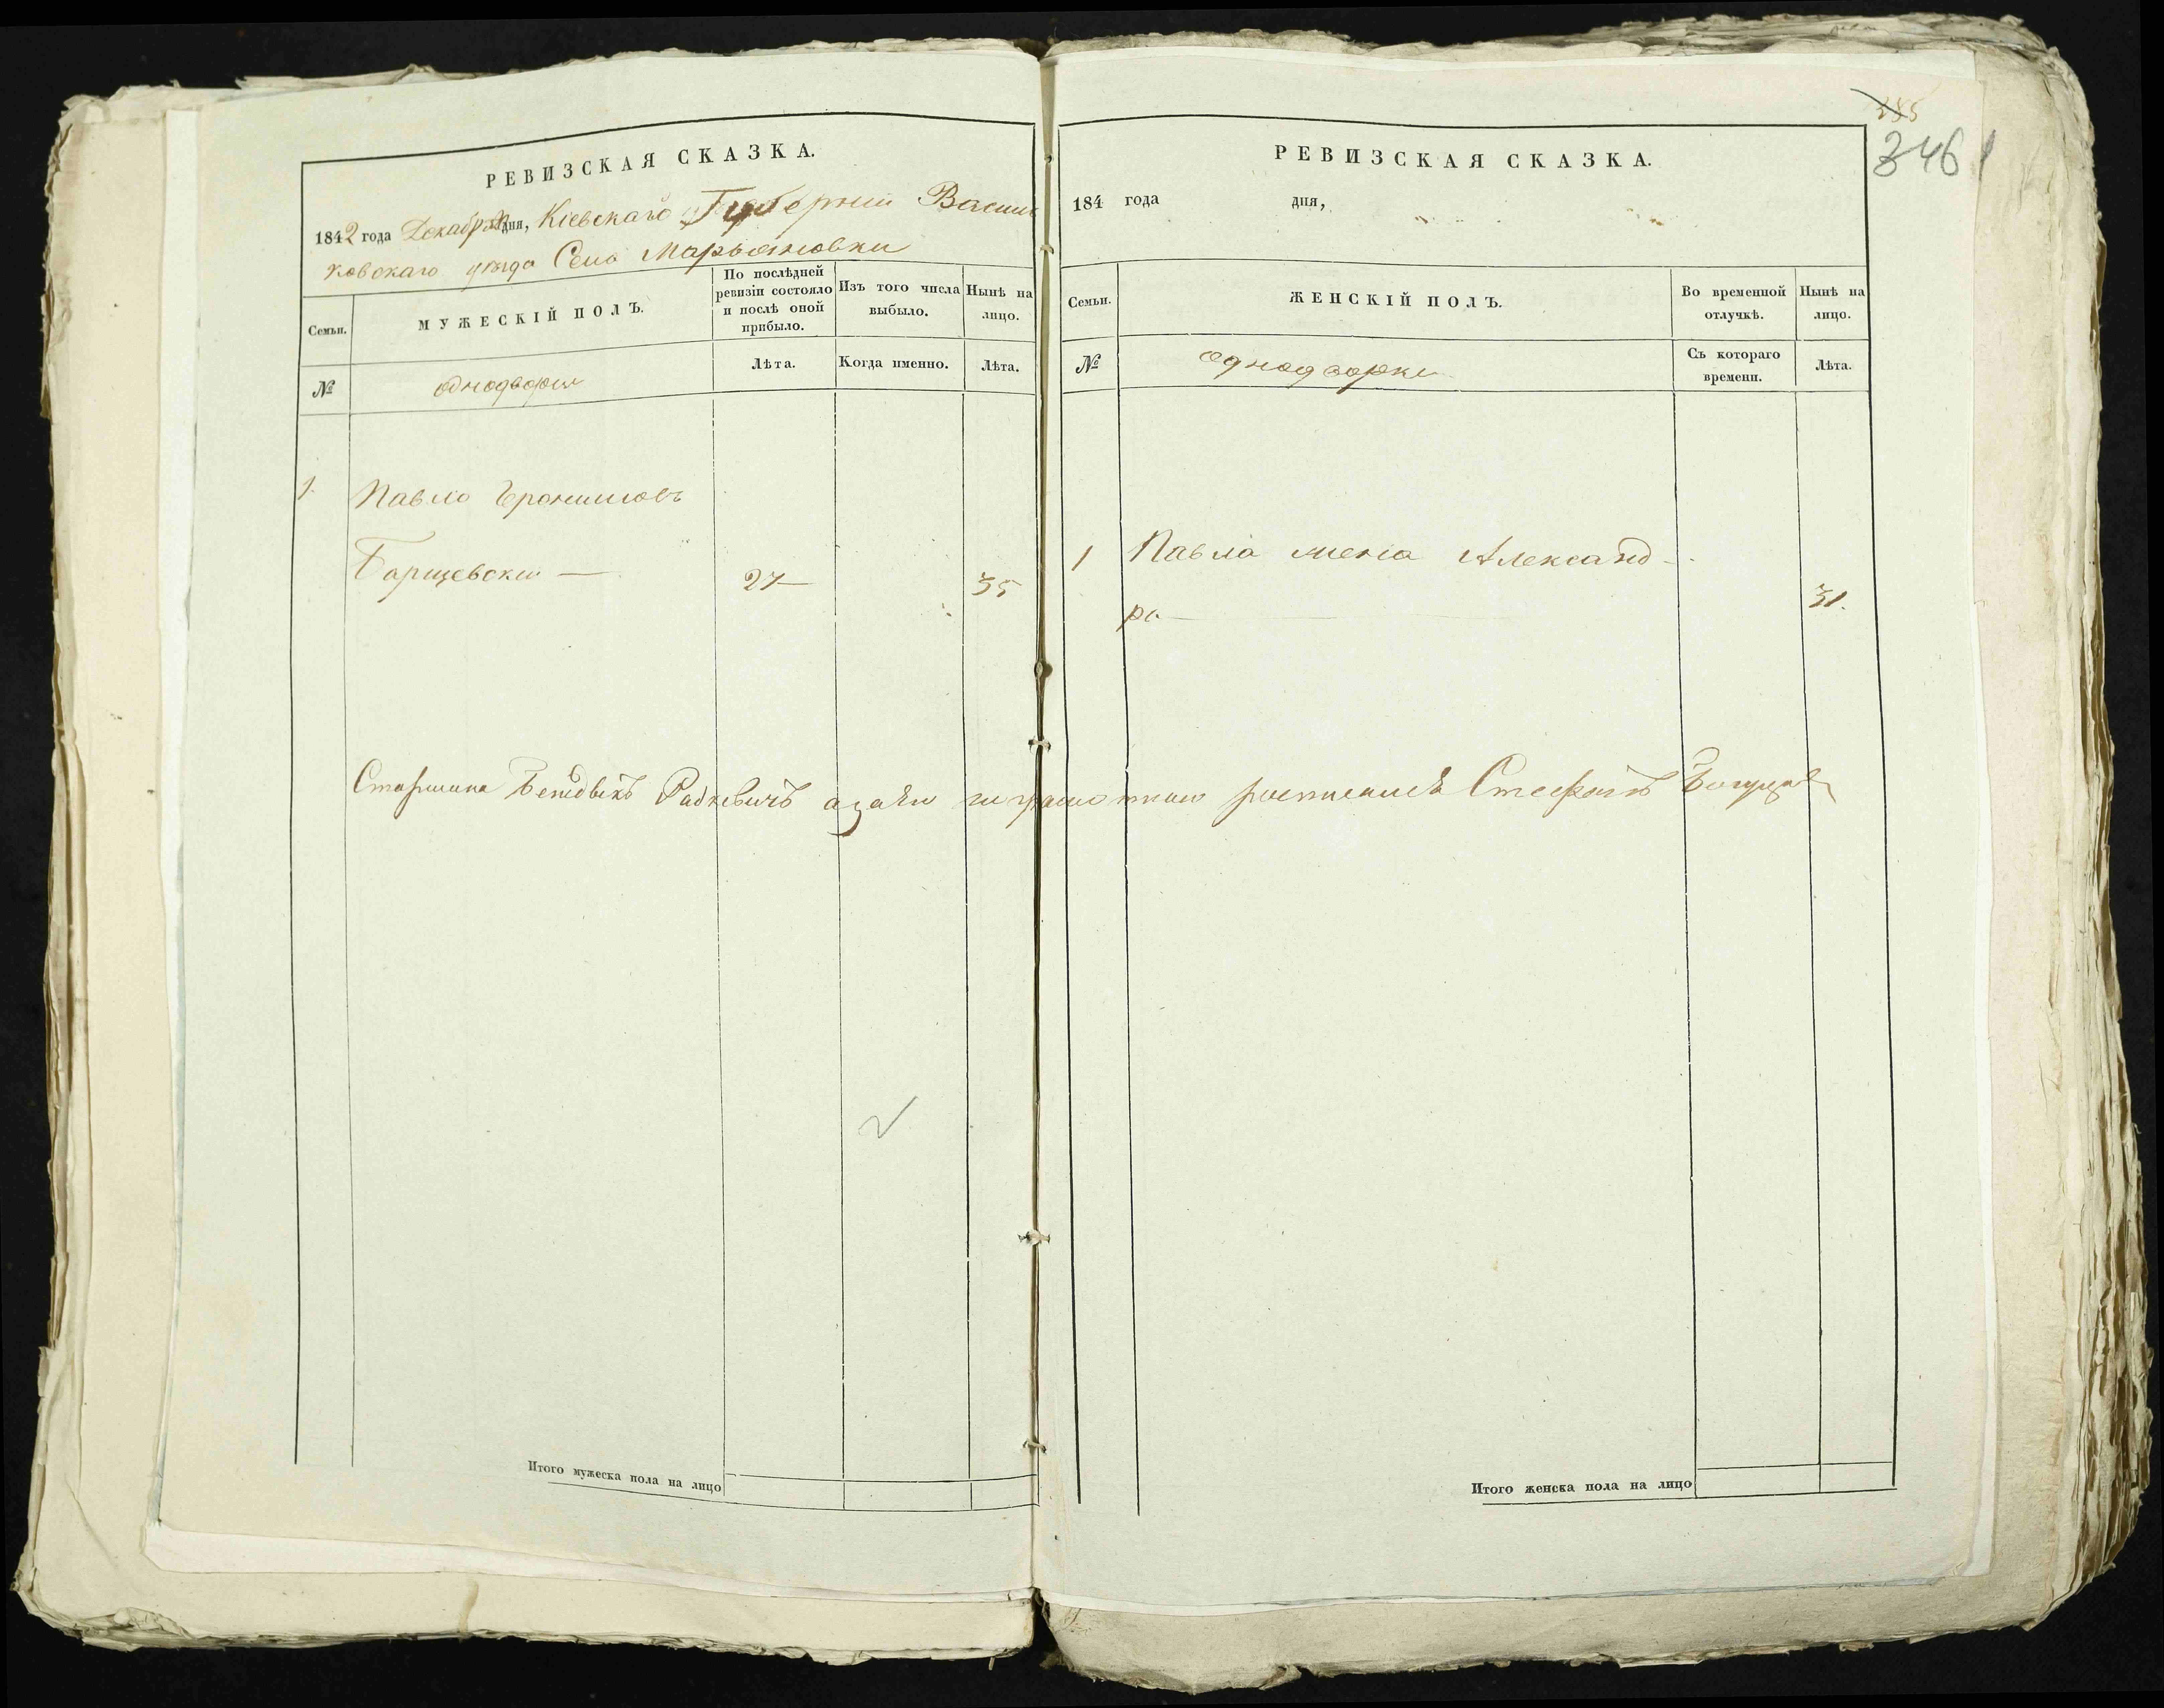 РЕВИЗСКАЯ СКАЗКА.
1842 года Декабря дня, Кіевскаго Губерніи Василь
ковскаго уезда Села Марьяновки
Семьи.
МУЖЕСКІЙ ПОЛЪ.
По послѣдней
ревизіи состояло
и послѣ оной
прибыло.
Изъ того числа
выбыло.
Нынѣ на
лицо.
№
однодворци
Лѣта.
Когда именно.
Лѣта.
1.
Павло
Барщевски — 27— 35
Старшина Бенедыктъ Радкевичъ Стефанъ
Итого мужеска пола на лицо
385
346
РЕВИЗСКАЯ СКАЗКА.
184 года дня,
Семьи.
ЖЕНСКІЙ ПОЛЪ.
Во временной
отлучкѣ.
Нынѣ на
лицо.
№
однодворки
Съ котораго
времени.
Лѣта.
1 Павла жена Александ-
ра — 31.
Итого женска пола на лицо